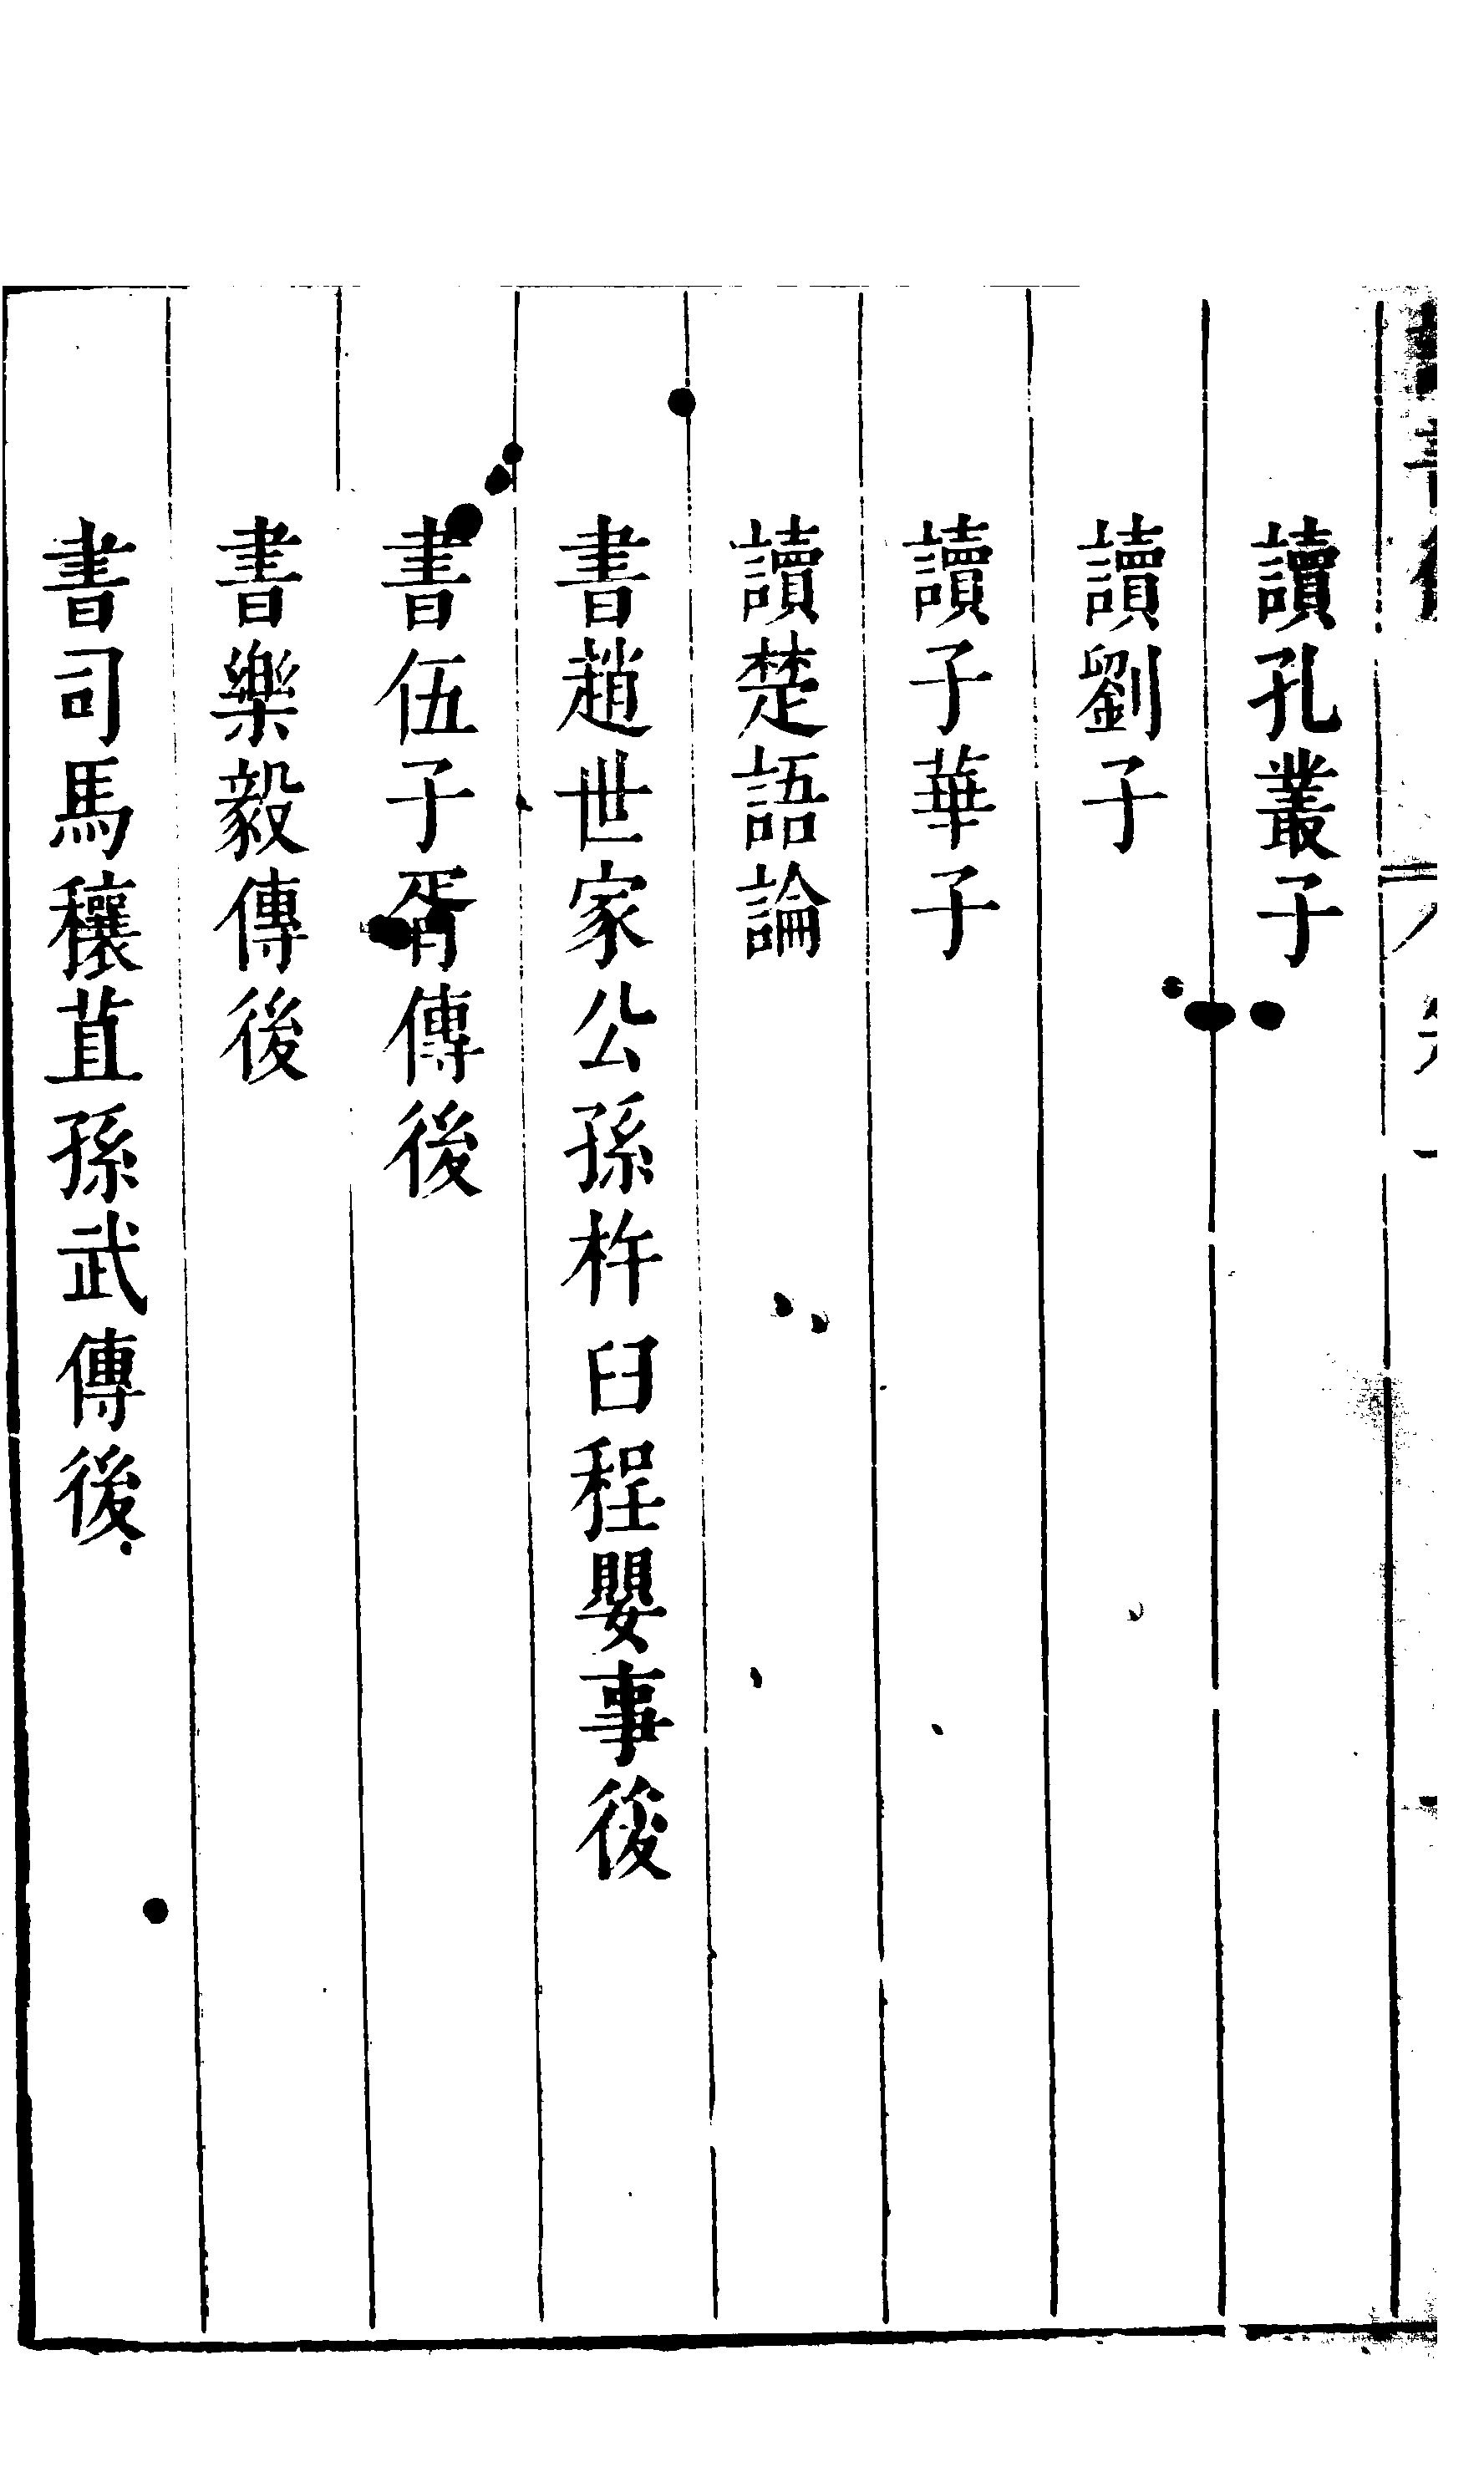 讀孔叢子
讀劉子
讀子華子
讀楚語論
書趙世家公孫杵臼程嬰事後
書伍子胥傳後
書樂毅傳後
書司馬穰苴孫武傳後